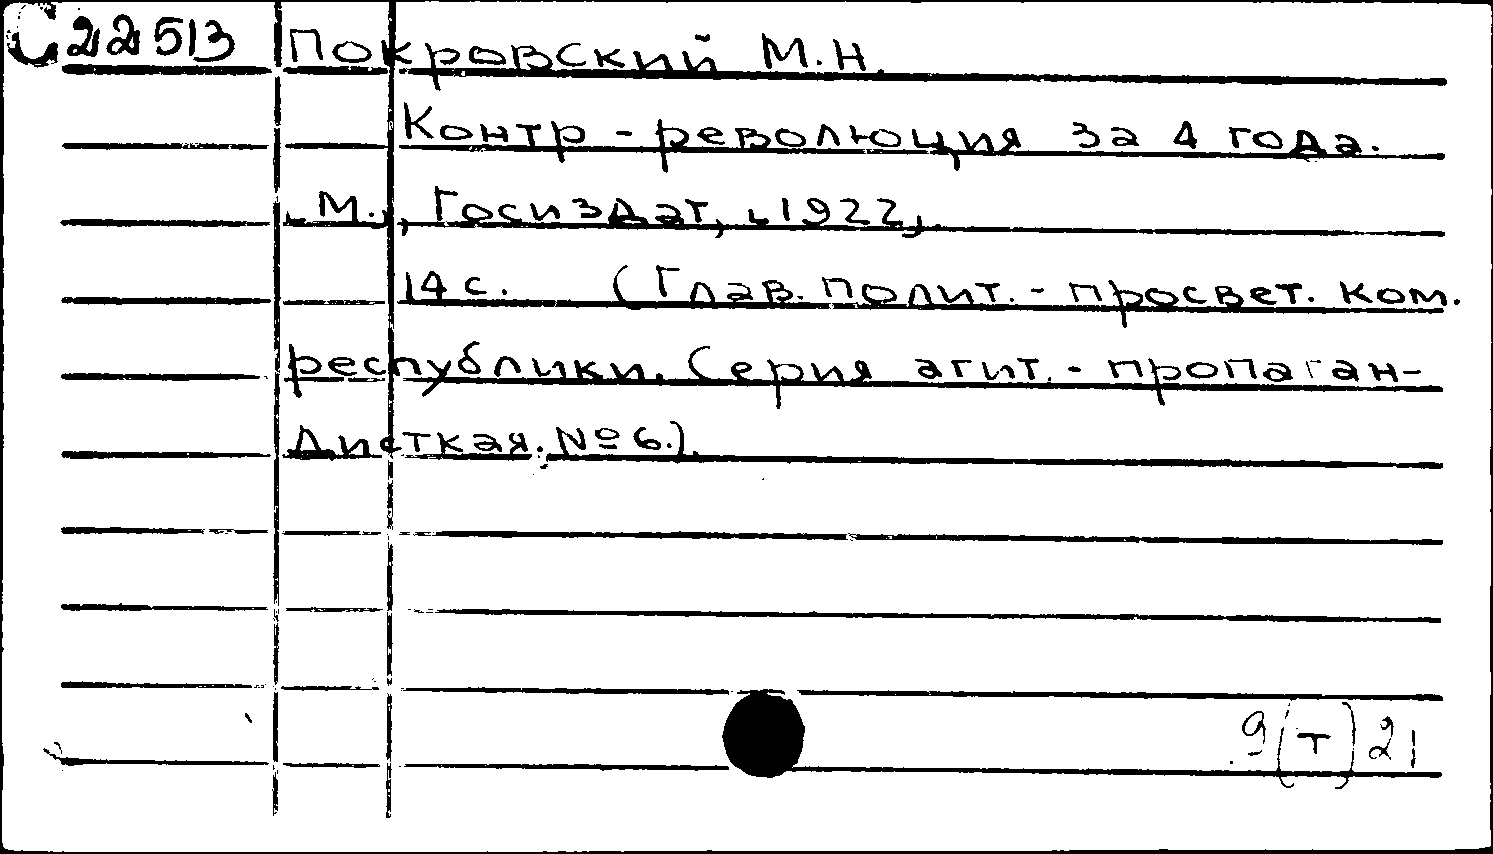 С22513 Покровский М.Н.
Контр-революция за 4 года.
[М.], Госиздат, [1922].
14 с. (Глав. полит.-просвет. ком.
республики. Серия агит.-пропаган-
дисткая. № 6.).
9(т)21